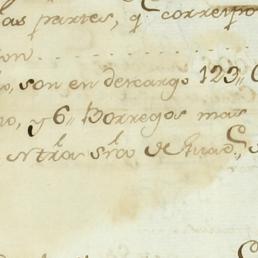 as partes, q.e correspo
on
, son en descargo 123
no, y 6,, Borregos mas
ntra Sra de Guad